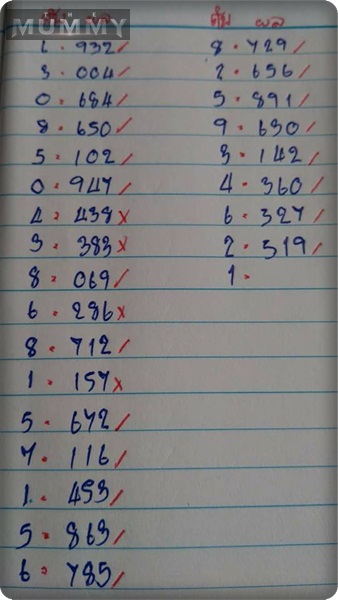 THE
MUMMY
ดับ ผล
1 - 932 /
3 - 004 /
0 - 684 /
8 - 650 /
5 - 102 /
0 - 947 /
4 - 438 x
3 - 383 x
8 - 069 /
6 - 286 x
8 - 712 /
1 - 157 x
5 - 672 /
7 - 116 /
1 - 453 /
5 - 863 /
6 - 785 /
ดับ ผล
8 - 729 /
2 - 656 /
5 - 891 /
9 - 630 /
3 - 142 /
4 - 360 /
6 - 327 /
2 - 519 /
1 -